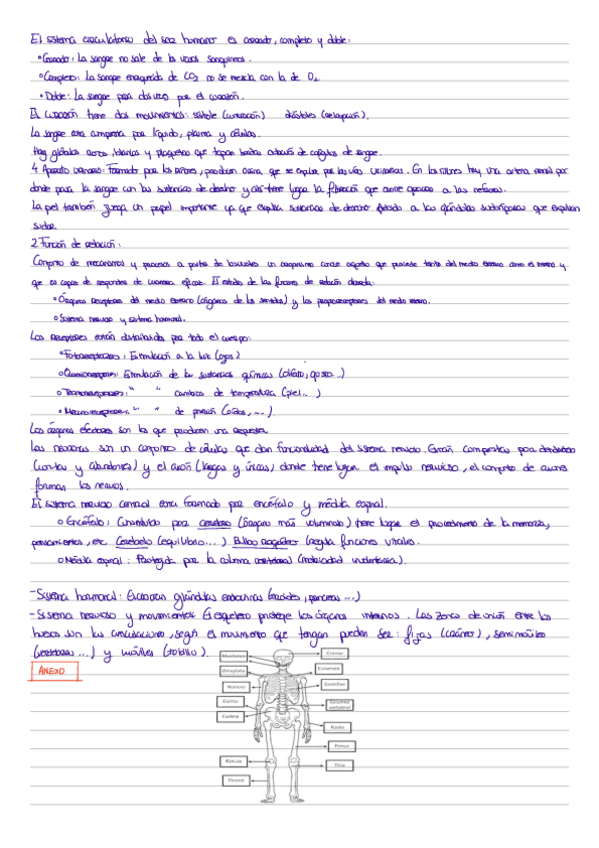 El sistema circulatorio del ser humano es cerrado, completo y doble:
• Cerrado: La sangre no sale de los vasos sanguíneos.
• Completo: La sangre enriquecida de CO2 no se mezcla con la de O2
• Doble: La sangre pasa dos veces por el corazón.
El corazón tiene dos movimientos: sístole (contracción) diástoles (relajación).
La sangre está compuesta por líquido, plasma y células.
Hay glóbulos rojos, blancos y plaquetas que tapan heridas a través de coágulos de sangre.
4. Aparato excretor: Formado por los riñones, producen orina que se expulsa por las vías urinarias. En los riñones hay una arteria renal por
donde pasa la sangre con las sustancias de desecho y ahí tiene lugar la filtración que ocurre gracias a las nefronas.
La piel también juega un papel importante ya que expulsa sustancias de desecho debido a las glándulas sudoríparas que expulsan
sudor.
2. Función de relación:
Conjunto de mecanismos y procesos a partir de los cuales un organismo conoce aquello que procede tanto del medio externo como el interno y
que es capaz de responder de manera eficaz. El estudio de las funciones de relación aborda:
• Órganos receptores del medio externo (órganos de los sentidos) y los propioceptores del medio interno.
• Sistema nervioso y sistema hormonal.
Los receptores están distribuidos por todo el cuerpo:
• Fotorreceptores: Estimulación a la luz (ojos)
• Quimiorreceptores: Estimulación de las sustancias químicas (olfato, gusto...)
• Termorreceptores: " " cambios de temperatura (piel...)
• Mecanorreceptores: " " de presión (oídos, ...)
Los órganos efectores son los que producen una respuesta
Las neuronas son un conjunto de células que dan funcionalidad del sistema nervioso. Están compuestas por dendritas
(cortas y abundantes) y el axón (largas y únicas) donde tiene lugar el impulso nervioso, el conjunto de axones
forman los nervios.
El sistema nervioso central está formado por encéfalo y médula espinal.
o Encéfalo: Constituido por cerebro (órgano más voluminoso) tiene lugar el procesamiento de la memoria,
pensamientos, etc. Cerebelo (equilibrio...) Bulbo raquídeo (regula funciones vitales.
o Médula espinal: Protegida por la columna vertebral (motricidad involuntaria).
- Sistema hormonal: Encontramos glándulas endocrinas (tiroides, páncreas ...)
- Sistema nervioso y movimientos: El esqueleto protege los órganos internos. Las zonas de unión entre los
huesos son las articulaciones, según el movimiento que tengan pueden ser: fijas (cráneo), semimóviles
(vertebras ...) y móviles (tobillo).
ANEXO
Cráneo
Mandíbula
Omoplato
Esternón
Húmero
Costillas
Cúbito
Columna vertebral
Cadera
Radio
Fémur
Rótula
Tibia
Peroné